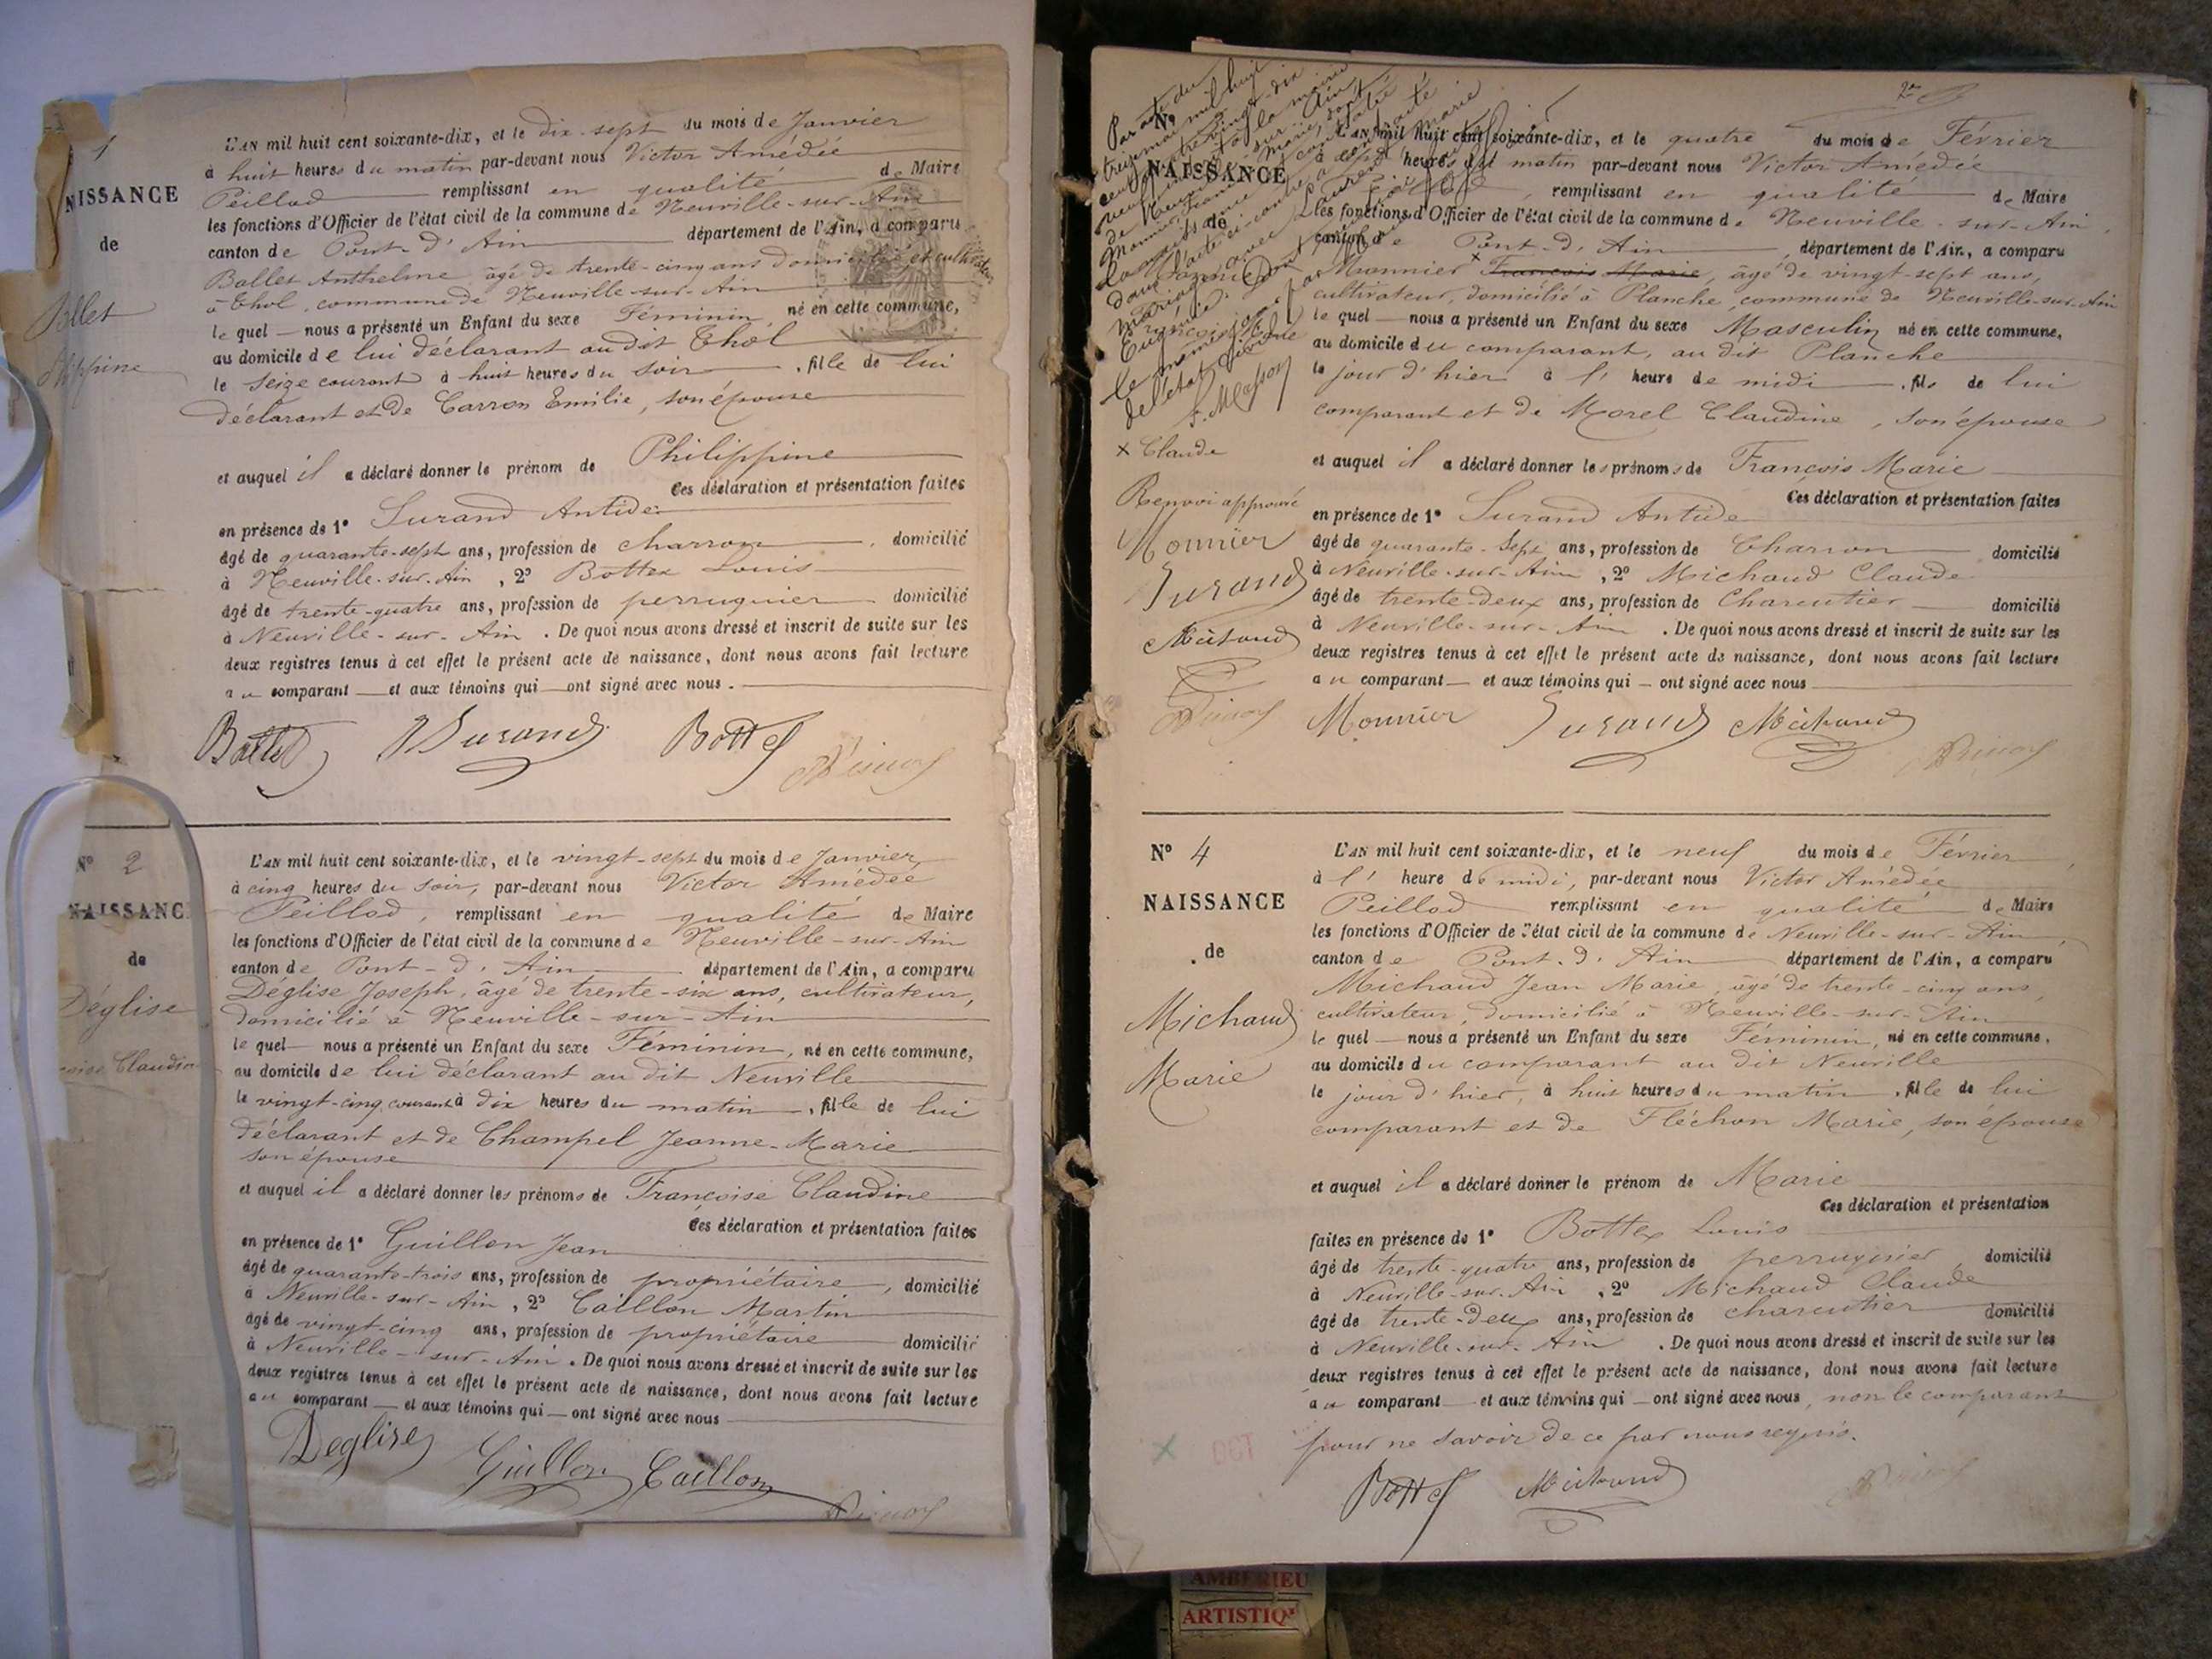 1
NAISSANCE
de
Ballet
L'AN mil huit cent soixante-dix, et le dix-sept du mois de Janvier
à huit heures du matin par-devant nous Victor Amédée
Peillod remplissant en qualité de Maire
les fonctions d'Officier de l'état civil de la commune de Neuville-sur-Ain
canton de Pont-d'Ain département de l'Ain, a comparu
Ballet Anthelme âgé de trente-cinq ans domicilié et cultivateur
à Thol, commune de Neuville-sur-Ain
le quel nous a présenté un Enfant du sexe Féminin né en cette commune,
au domicile de lui déclarant au dit Thol
le seize courant à huit heures du soir, fille de lui
déclarant et de Carron Emilie, son épouse
et auquel il a déclaré donner le prénom de Philippine
Ces déclaration et présentation faites
en présence de 1° Durand Antide
âgé de quarante-sept ans, profession de charron, domicilié
à Neuville-sur-Ain, 2° Bottex Louis
âgé de trente-quatre ans, profession de perruquier domicilié
à Neuville-sur-Ain. De quoi nous avons dressé et inscrit de suite sur les
deux registres tenus à cet effet le présent acte de naissance, dont nous avons fait lecture
au comparant et aux témoins qui ont signé avec nous.
Ballet Durand Bottex
N° 2
NAISSANC
de
Déglise
Claudine
L'AN mil huit cent soixante-dix, et le vingt-sept du mois de Janvier,
à cinq heures du soir, par-devant nous Victor Amédée
Peillod, remplissant en qualité de Maire
les fonctions d'Officier de l'état civil de la commune de Neuville-sur-Ain
canton de Pont-d'Ain département de l'Ain, a comparu
Déglise Joseph, âgé de trente-six ans, cultivateur,
domicilié à Neuville-sur-Ain
le quel nous a présenté un Enfant du sexe Féminin, né en cette commune,
au domicile de lui déclarant au dit Neuville
le vingt-cinq courant à dix heures du matin, fille de lui
déclarant et de Champel Jeanne-Marie
son épouse
et auquel il a déclaré donner les prénoms de Françoise Claudine
Ces déclaration et présentation faites
en présence de 1° Guillon Jean
âgé de quarante-trois ans, profession de propriétaire, domicilié
à Neuville-sur-Ain, 2° Caillon Martin
âgé de vingt-cinq ans, profession de propriétaire domicilié
à Neuville-sur-Ain. De quoi nous avons dressé et inscrit de suite sur les
deux registres tenus à cet effet le présent acte de naissance, dont nous avons fait lecture
au comparant et aux témoins qui ont signé avec nous
Déglise Guillon Caillon
Par acte du
treize mai mil huit
cent quatre vingt-dix
à la mairie
de Neuville sur Ain
Monnier François Marie, dont
la naissance est constatée
dans l'acte ci-contre a contracté
mariage avec
Eugénie
le même jour par
de l'état civil
Masson
N°
NAISSANCE
de
× Claude
Renvoi approuvé
Monnier
Durand
Michaud
L'AN mil huit cent soixante-dix, et le quatre du mois de Février
à sept heures du matin par-devant nous Victor Amédée
Peillod, remplissant en qualité de Maire
les fonctions d'Officier de l'état civil de la commune de Neuville-sur-Ain,
canton de Pont-d'Ain, département de l'Ain, a comparu
Monnier × François Marie, âgé de vingt-sept ans,
cultivateur, domicilié à Planche, commune de Neuville-sur-Ain
le quel nous a présenté un Enfant du sexe Masculin né en cette commune,
au domicile du comparant, au dit Planche
le jour d'hier à l'heure de midi, fils de lui
comparant et de Morel Claudine, son épouse
et auquel il a déclaré donner les prénoms de François Marie
Ces déclaration et présentation faites
en présence de 1° Durand Antide
âgé de quarante-sept ans, profession de Charron domicilié
à Neuville-sur-Ain, 2° Michaud Claude
âgé de trente-deux ans, profession de Charcutier domicilié
à Neuville-sur-Ain. De quoi nous avons dressé et inscrit de suite sur les
deux registres tenus à cet effet le présent acte de naissance, dont nous avons fait lecture
au comparant et aux témoins qui ont signé avec nous
Monnier Durand Michaud
N° 4
NAISSANCE
de
Michaud
Marie
L'AN mil huit cent soixante-dix, et le neuf du mois de Février
à l'heure de midi, par-devant nous Victor Amédée
Peillod remplissant en qualité de Maire
les fonctions d'Officier de l'état civil de la commune de Neuville-sur-Ain,
canton de Pont-d'Ain département de l'Ain, a comparu
Michaud Jean Marie, âgé de trente-cinq ans,
cultivateur, domicilié à Neuville-sur-Ain
le quel nous a présenté un Enfant du sexe Féminin, né en cette commune,
au domicile du comparant au dit Neuville
le jour d'hier, à huit heures du matin, fille de lui
comparant et de Fléchon Marie, son épouse
et auquel il a déclaré donner le prénom de Marie
Ces déclaration et présentation
faites en présence de 1° Bottex Louis
âgé de trente-quatre ans, profession de perruquier domicilié
à Neuville-sur-Ain, 2° Michaud Claude
âgé de trente-deux ans, profession de charcutier domicilié
à Neuville-sur-Ain. De quoi nous avons dressé et inscrit de suite sur les
deux registres tenus à cet effet le présent acte de naissance, dont nous avons fait lecture
au comparant et aux témoins qui ont signé avec nous, non le comparant
pour ne savoir de ce par nous requis.
Bottex Michaud
AMBERIEU
ARTISTIQ